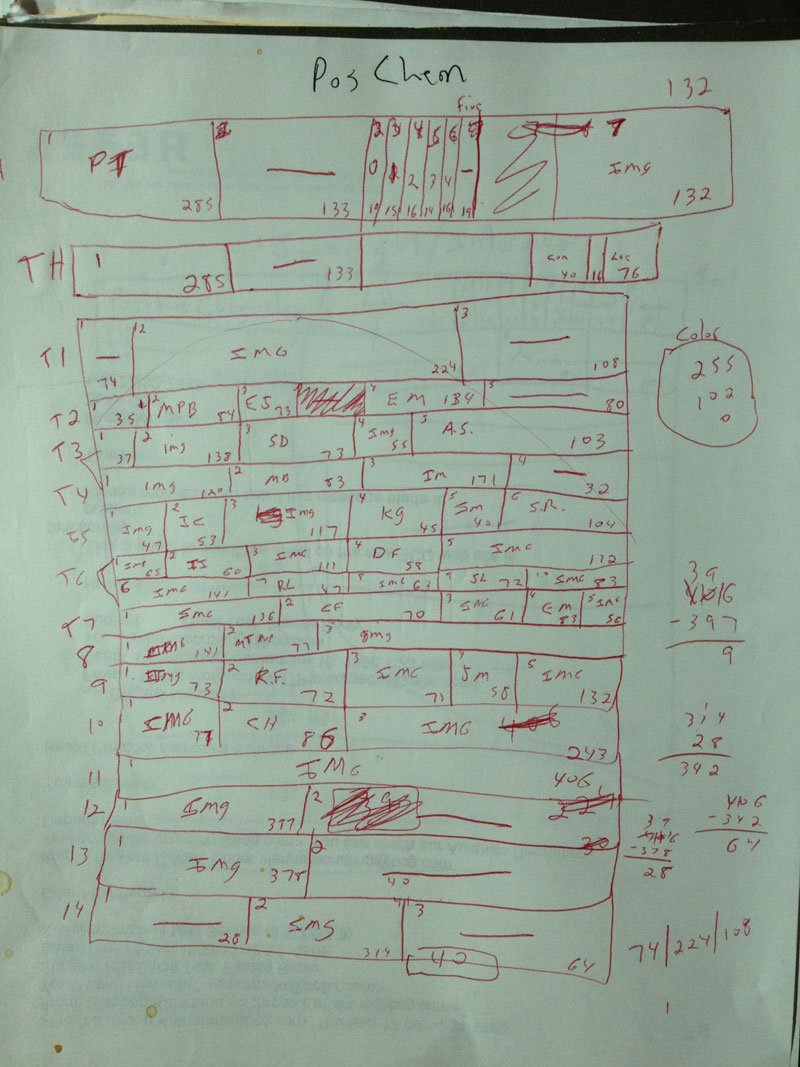 Pos Chem
132
Five
1 2 3 4 5 6 7
PI — 0 1 2 3 4 — Img
285 133 19 15 16 14 16 19 132
TH 1 — Con Loc
285 133 40 16 76
T1 1 — 74 2 IMG 224 3 — 108
Color
255
102
0
T2 1 35 2 MPB 84 3 EJ 73 4 EM 134 5 — 80
T3 1 37 2 img 138 3 SD 73 4 Img 55 5 A.S. 103
T4 1 img 120 2 MB 83 3 Im 171 4 — 32
T5 1 Img 47 2 IC 53 3 Img 117 4 Kg 45 5 Sm 40 6 S.R. 104
T6 1 Img 65 2 II 60 3 IMG 111 4 DF 58 5 IMG 112
6 IMG 141 7 RL 47 8 IMG 63 9 SL 72 10 IMG 83
T7 1 IMG 136 2 CF 70 3 IMG 61 4 EM 83 5 IMG 56
8 1 141 2 77 3 Img
9 1 Img 73 2 R.F. 72 3 IMG 71 4 Sm 58 5 IMG 132
10 1 IMG 77 2 CH 86 3 IMG 243
11 1 IMG 406
12 1 Img 377 2 —
13 1 Img 378 2 — 40
14 1 — 28 2 Img 314 3 — 64
40
39
4016
- 397
9
1
314
28
342
406
- 342
64
- 378
28
74 | 224 | 108